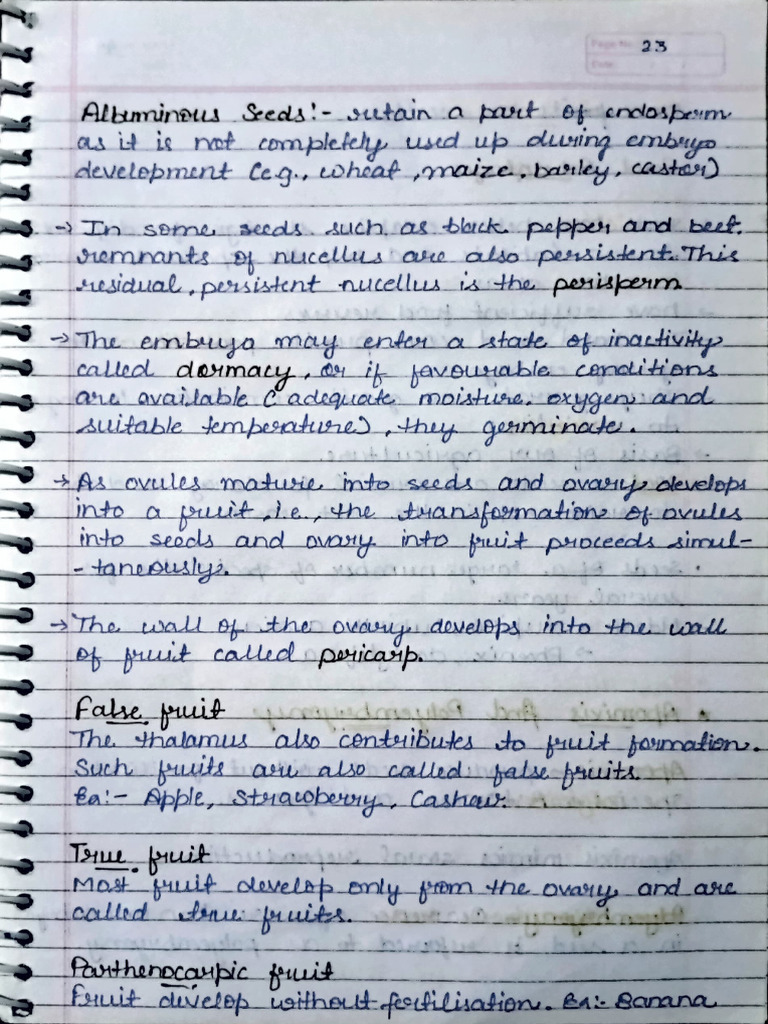 Page No. 23
Date:
Albuminous Seeds:- retain a part of endosperm
as it is not completely used up during embryo
development (e.g., wheat, maize, barley, castor)
→ In some seeds such as black pepper and beet.
remnants of nucellus are also persistent. This
residual, persistent nucellus is the perisperm
→ The embryo may enter a state of inactivity
called dormacy, or if favourable conditions
are available (adequate moisture, oxygen and
suitable temperature), they germinate.
→ As ovules mature into seeds and ovary develops
into a fruit, i.e., the transformation of ovules
into seeds and ovary into fruit proceeds simul-
-taneously.
→ The wall of the ovary develops into the wall
of fruit called pericarp.
False fruit
The thalamus also contributes to fruit formation.
Such fruits are also called false fruits.
Ea:- Apple, Strawberry, Cashew
True fruit
Most fruit develop only from the ovary and are
called true fruits.
Parthenocarpic fruit
Fruit develop without fertilisation. Ea:- Banana